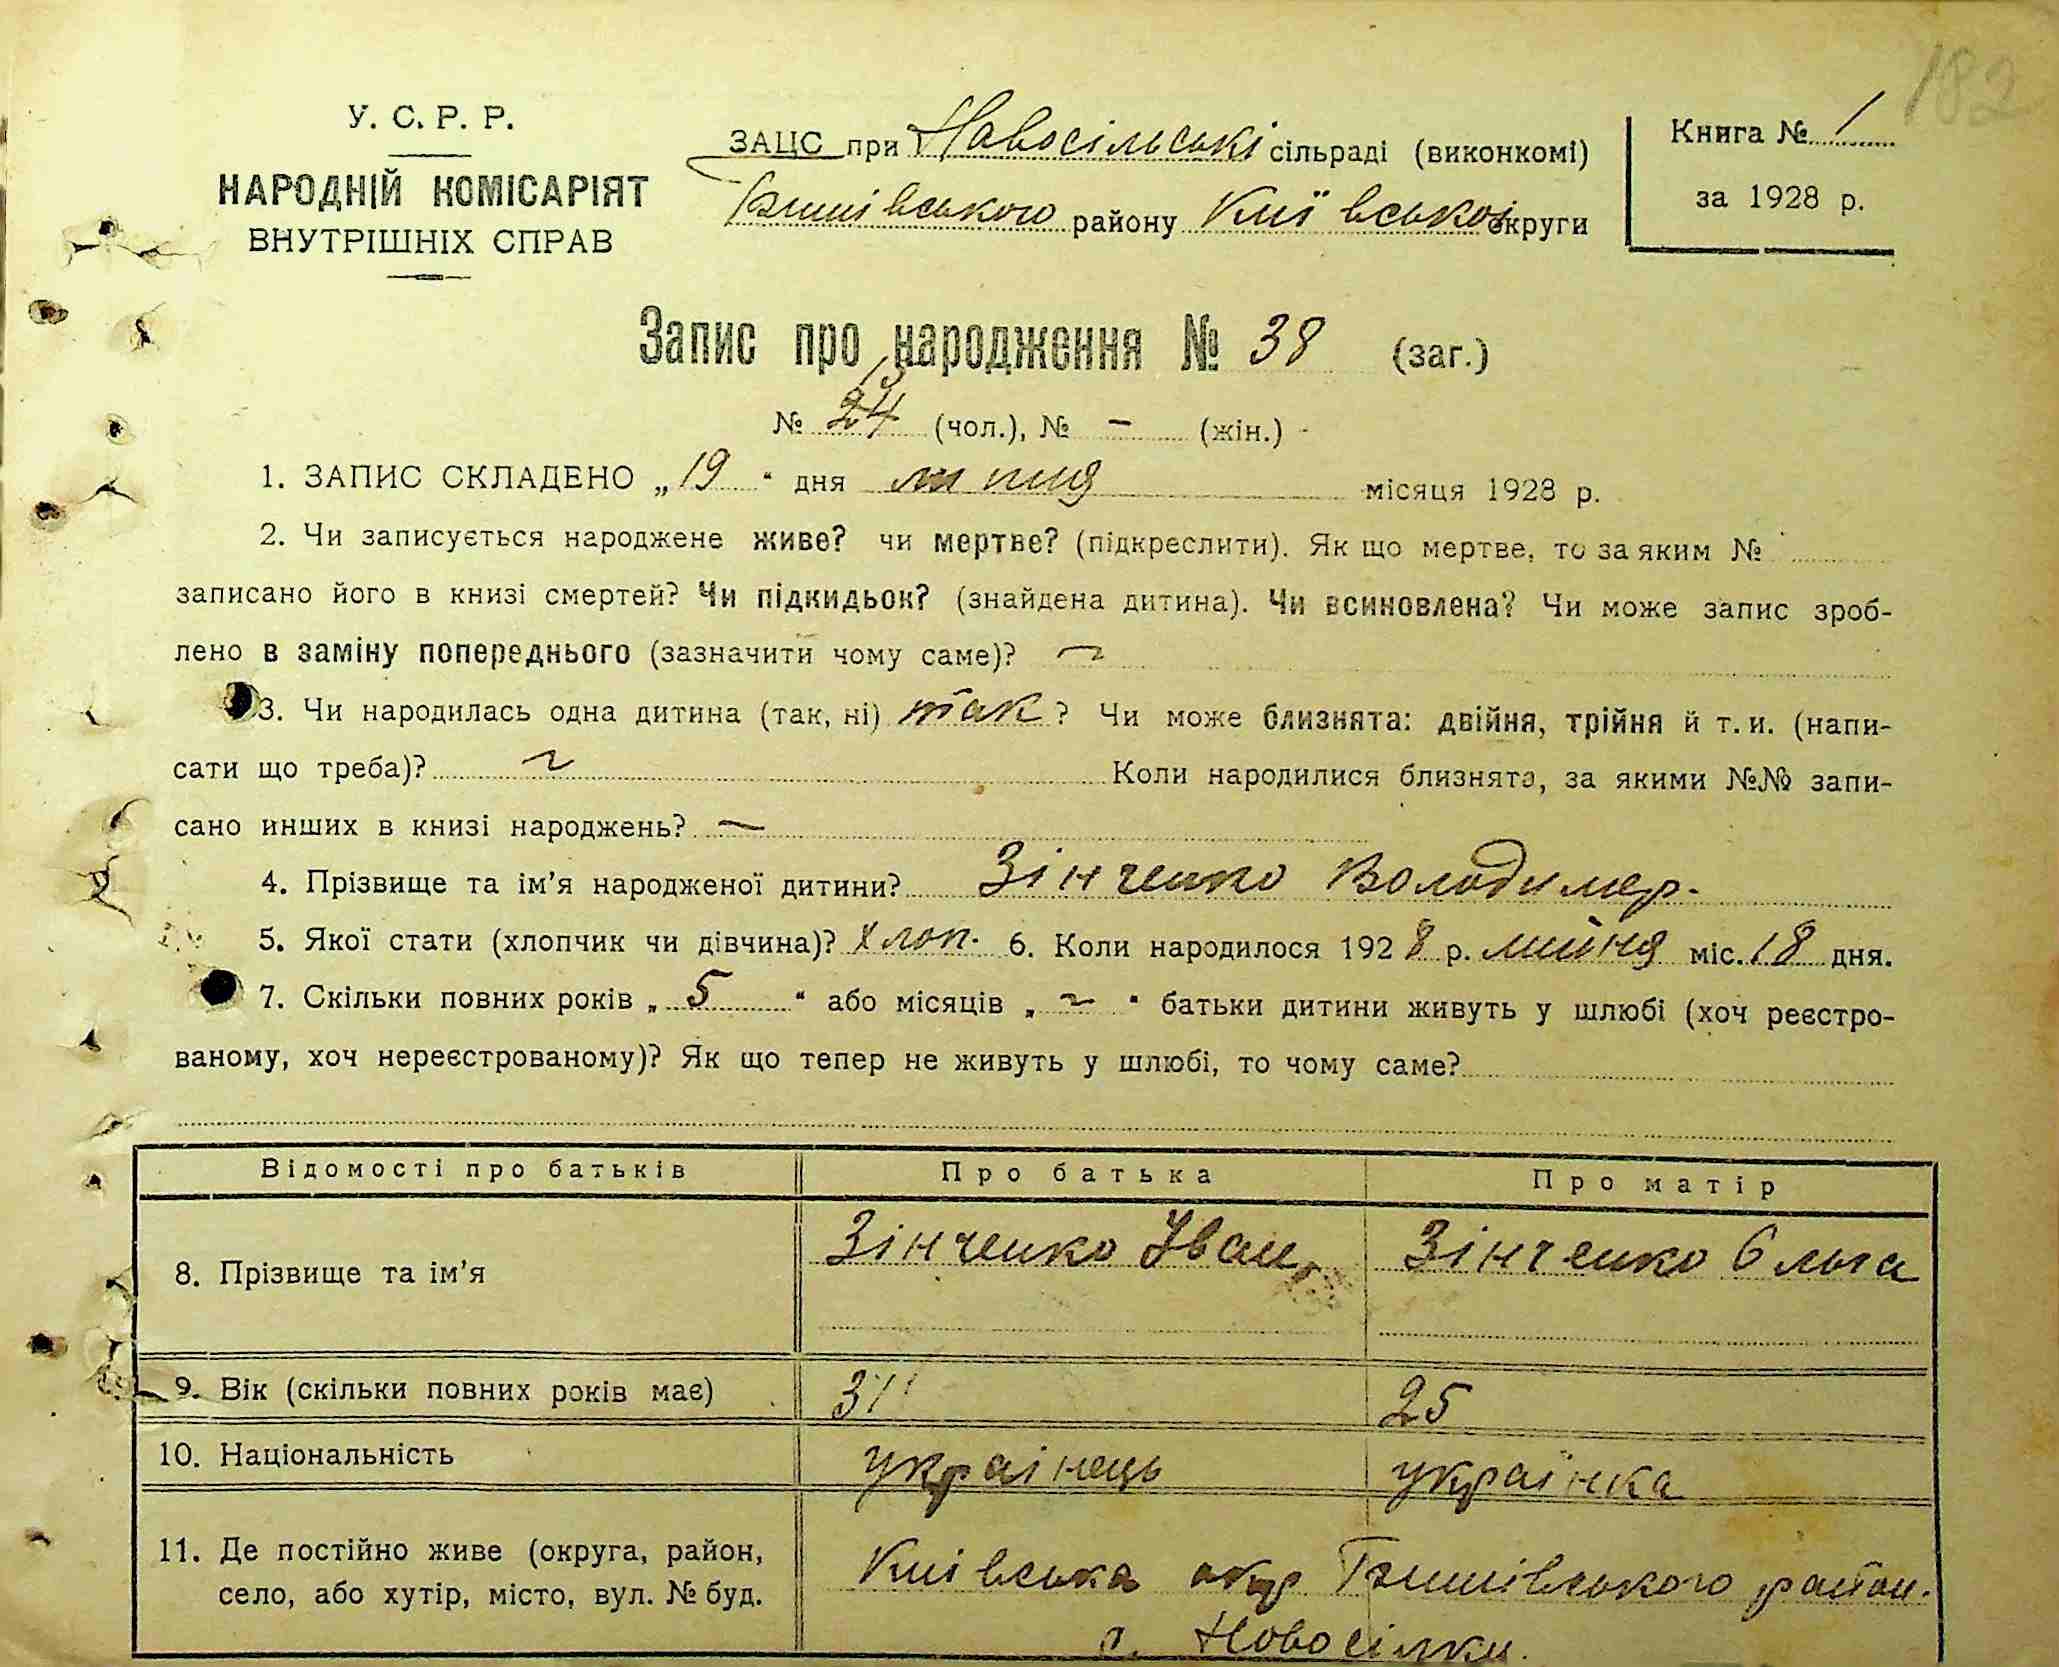 182
У. С. Р. Р.
НАРОДНІЙ КОМІСАРІЯТ
ВНУТРІШНІХ СПРАВ
ЗАЦС при Новосільські сільраді (виконкомі)
району Київської округи
Книга № 1
за 1928 р.
Запис про народження № 38 (заг.)
№ 24 (чол.), № – (жін.)
1. ЗАПИС СКЛАДЕНО „19“ дня липня місяця 1928 р.
2. Чи записується народжене живе? чи мертве? (підкреслити). Як що мертве, то за яким №
записано його в книзі смертей? Чи підкидьок? (знайдена дитина). Чи всиновлена? Чи може запис зроб-
лено в заміну попереднього (зазначити чому саме)? ~
3. Чи народилась одна дитина (так, ні) так ? Чи може близнята: двійня, трійня й т. и. (напи-
сати що треба)? ~ Коли народилися близнята, за якими №№ запи-
сано инших в книзі народжень? –
4. Прізвище та ім’я народженої дитини? Зінченко Володимер.
5. Якої стати (хлопчик чи дівчина)? хлоп. 6. Коли народилося 1928 р. липня міс. 18 дня.
7. Скільки повних років „ 5 “ або місяців „ ~ “ батьки дитини живуть у шлюбі (хоч реєстро-
ваному, хоч нереєстрованому)? Як що тепер не живуть у шлюбі, то чому саме?
Відомості про батьків Про батька Про матір
8. Прізвище та ім’я Зінченко Іван Зінченко Ольга
9. Вік (скільки повних років має) 25
10. Національність українець українка
11. Де постійно живе (округа, район,
село, або хутір, місто, вул. № буд.
Київська окр район.
с. Новосілки.